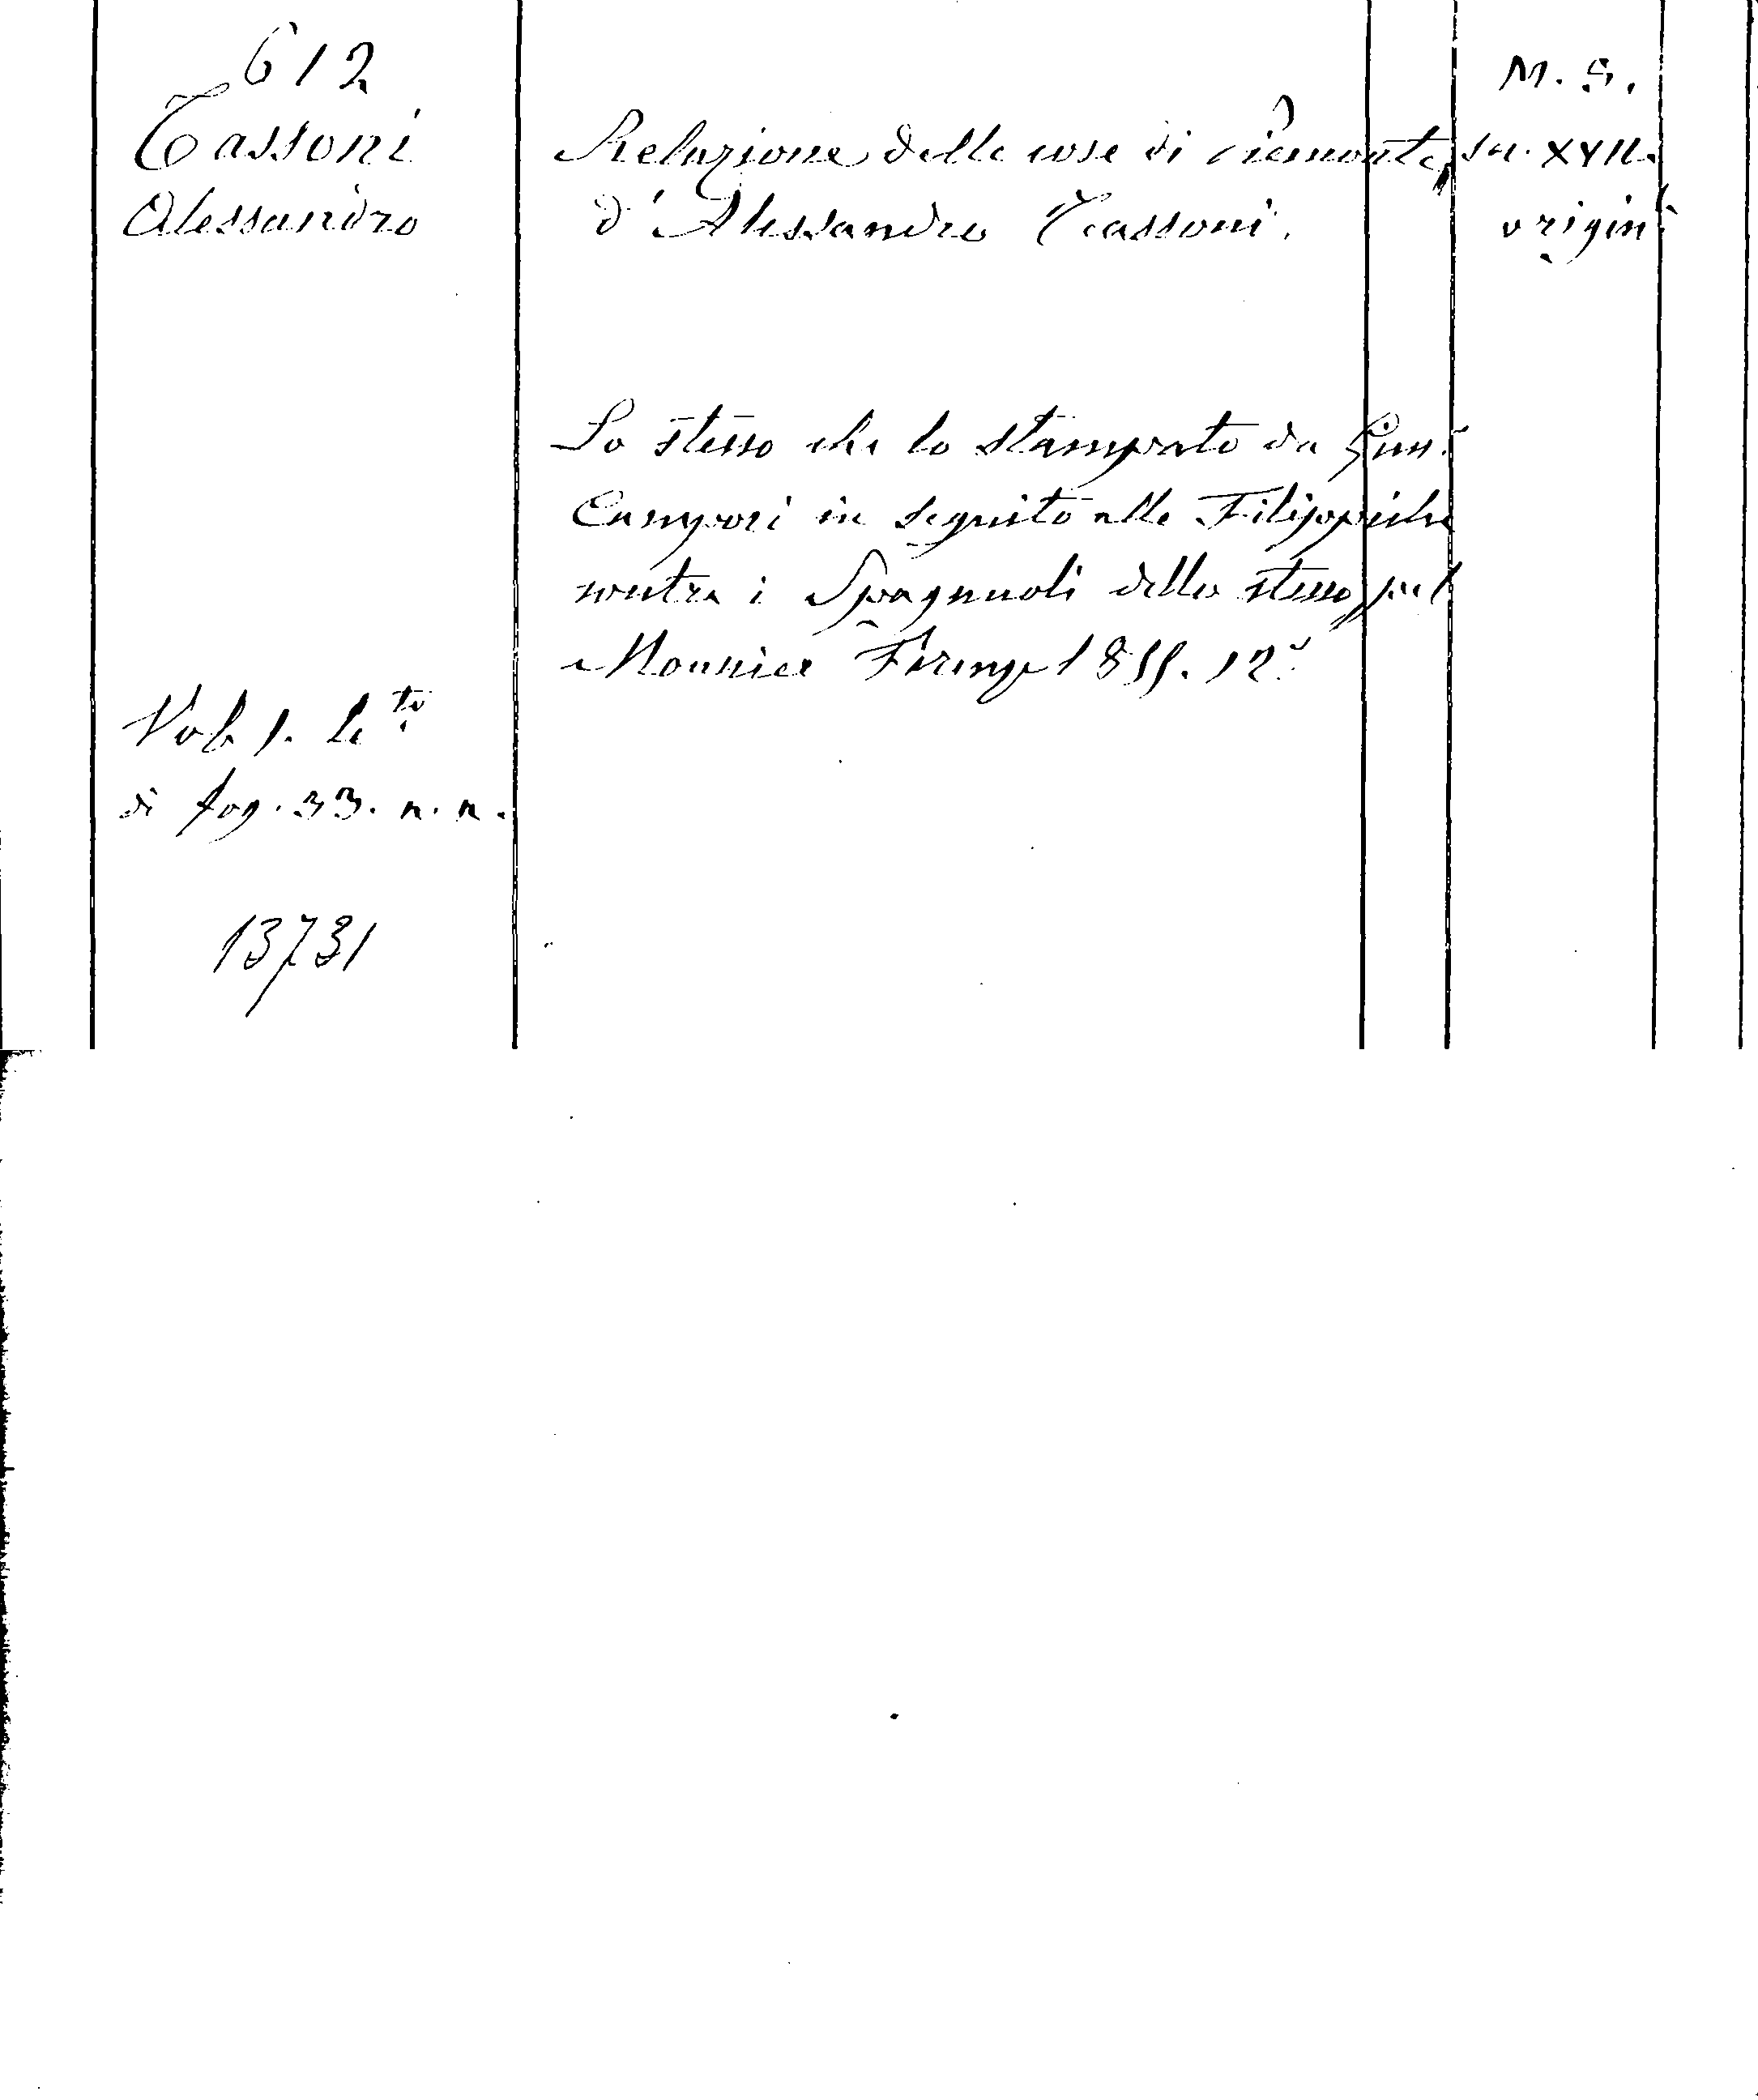 612
Tassoni
Alessandro
Relazione delle cose di Piemonte,
d'Alessandro Tassoni.
M. S.
sec. XVII.
origin
Lo stesso che lo stampato da
Campori in seguito alle Filippiche
contra i Spagnuoli dello stesso, pel
Monnier Firenze 1855. 12°
Vol. 1. le to
di fog. 33. n. n.
13731